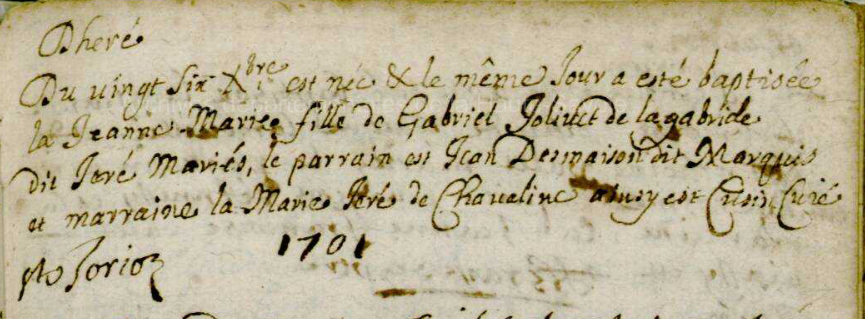 Dheré
Du vingt six Xbre est née & le même Jour a esté baptisée
la Jeanne Marie fille de Gabriel Joliuet de lagabride
dit Jeré Mariés, le parrain est Jean Desmaison dit Marquis
et marraine la Marie Jeré de Chavaline ainsy est Cusin Curé
1701